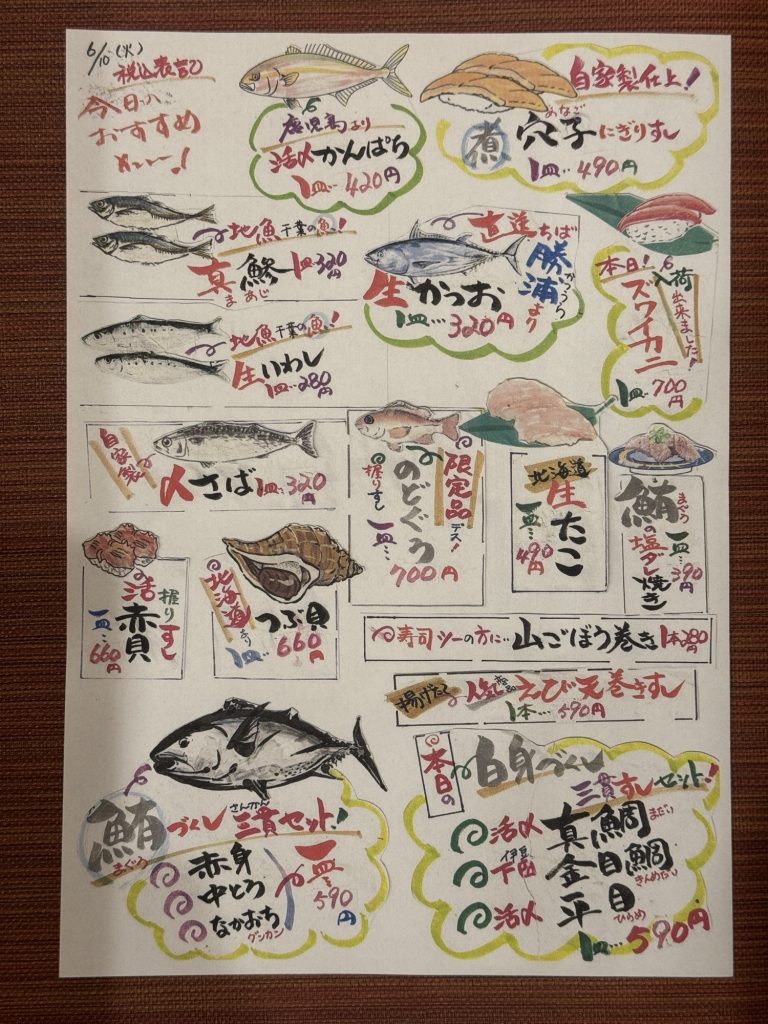 6/10(火)
税込表記
今日の
おすすめ
メニュー!
鹿児島より
活〆かんぱち
1皿…420円
自家製仕上!
煮 穴子にぎりすし
あなご
1皿…490円
地魚 千葉の魚!
真鯵 1皿…320円
まあじ
直送ちば
勝浦より
かつうら
生かつお
1皿…320円
本日!入荷
出来ました!
ズワイカニ
1皿…700円
地魚 千葉の魚!
生いわし
1皿…280円
自家製
〆さば 1皿…320円
限定品デス!
のどぐろ
握りすし 一皿…
700円
北海道
生たこ
一皿…490円
鮪の塩ダレ焼き
まぐろ
一皿…390円
活赤貝
握りすし
一皿…660円
北海道より
つぶ貝
1皿…660円
寿司シーの方に…山ごぼう巻き 1本280円
揚げたて 人気商品 えび天巻きすし
1本…590円
鮪づくし三貫セット!
まぐろ
さんかん
赤身
中とろ
なかおち
グンカン
一皿…590円
本日の
白身づくし
三貫すしセット!
活〆 真鯛
まだい
伊豆下田 金目鯛
きんめだい
活〆 平目
ひらめ
1皿…590円